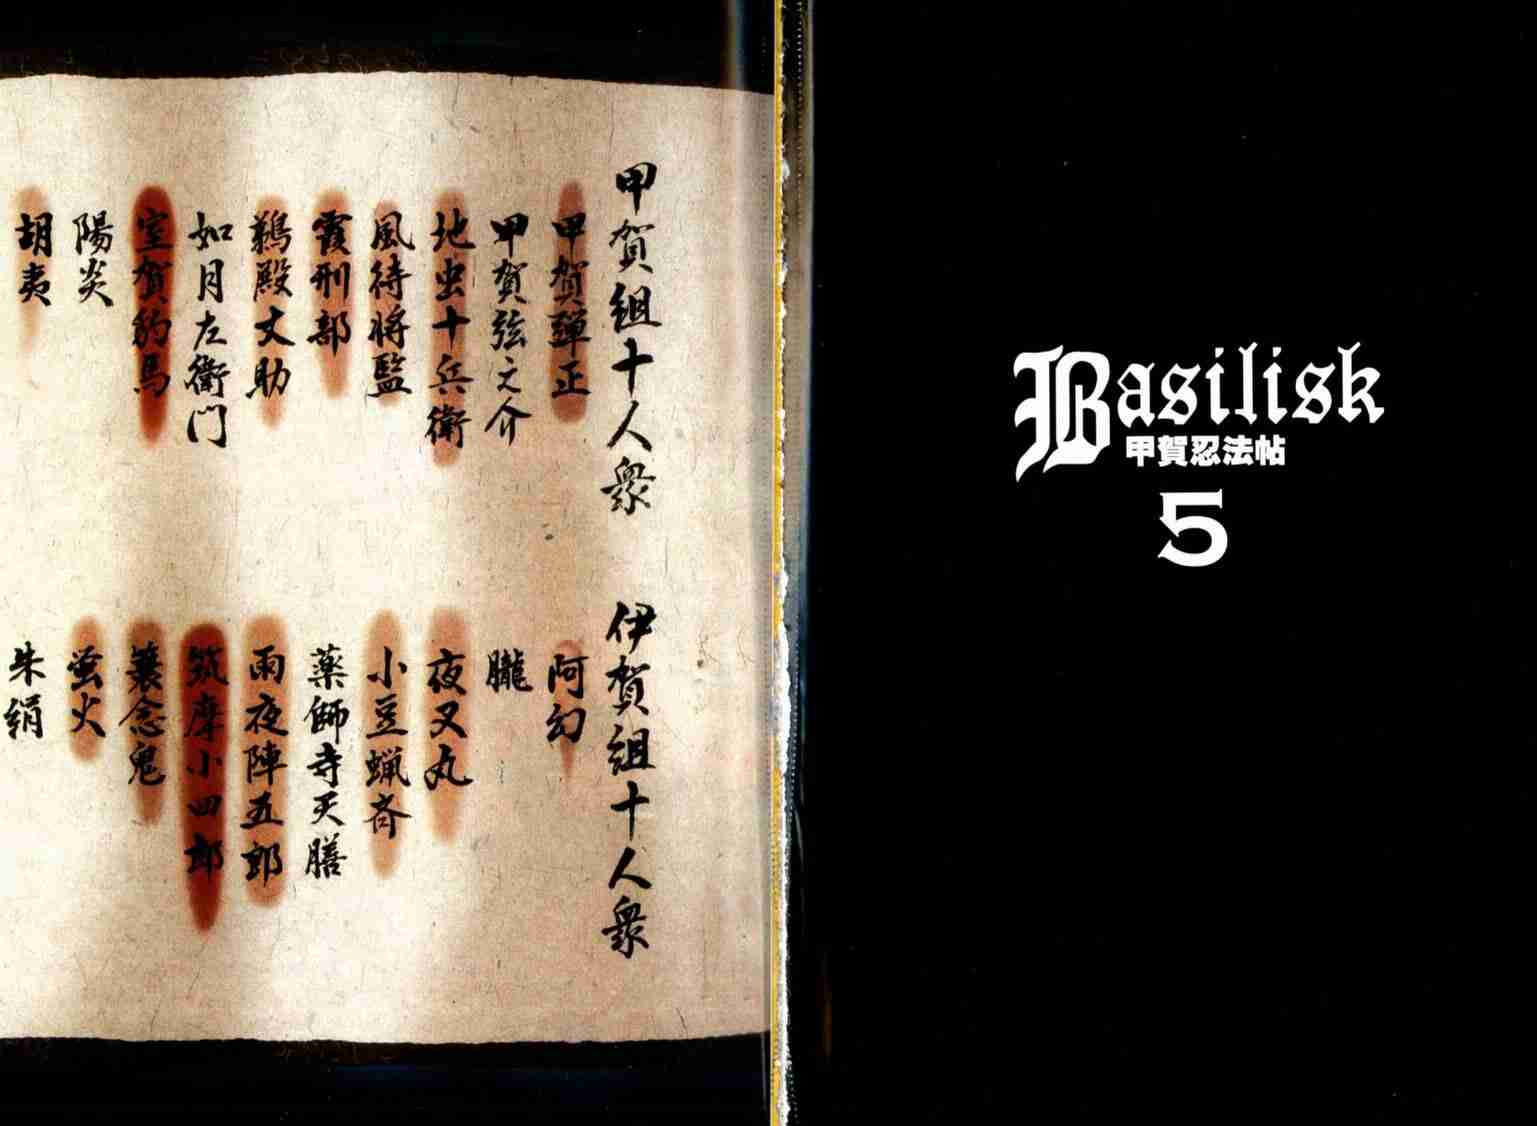 Basilisk
甲賀忍法帖
5
甲賀組十人衆
甲賀弾正
甲賀弦之介
地虫十兵衛
風待将監
霞刑部
鵜殿丈助
如月左衛門
室賀豹馬
陽炎
胡夷
伊賀組十人衆
阿幻
朧
夜叉丸
小豆蝋斎
薬師寺天膳
雨夜陣五郎
筑摩小四郎
蓑念鬼
蛍火
朱絹